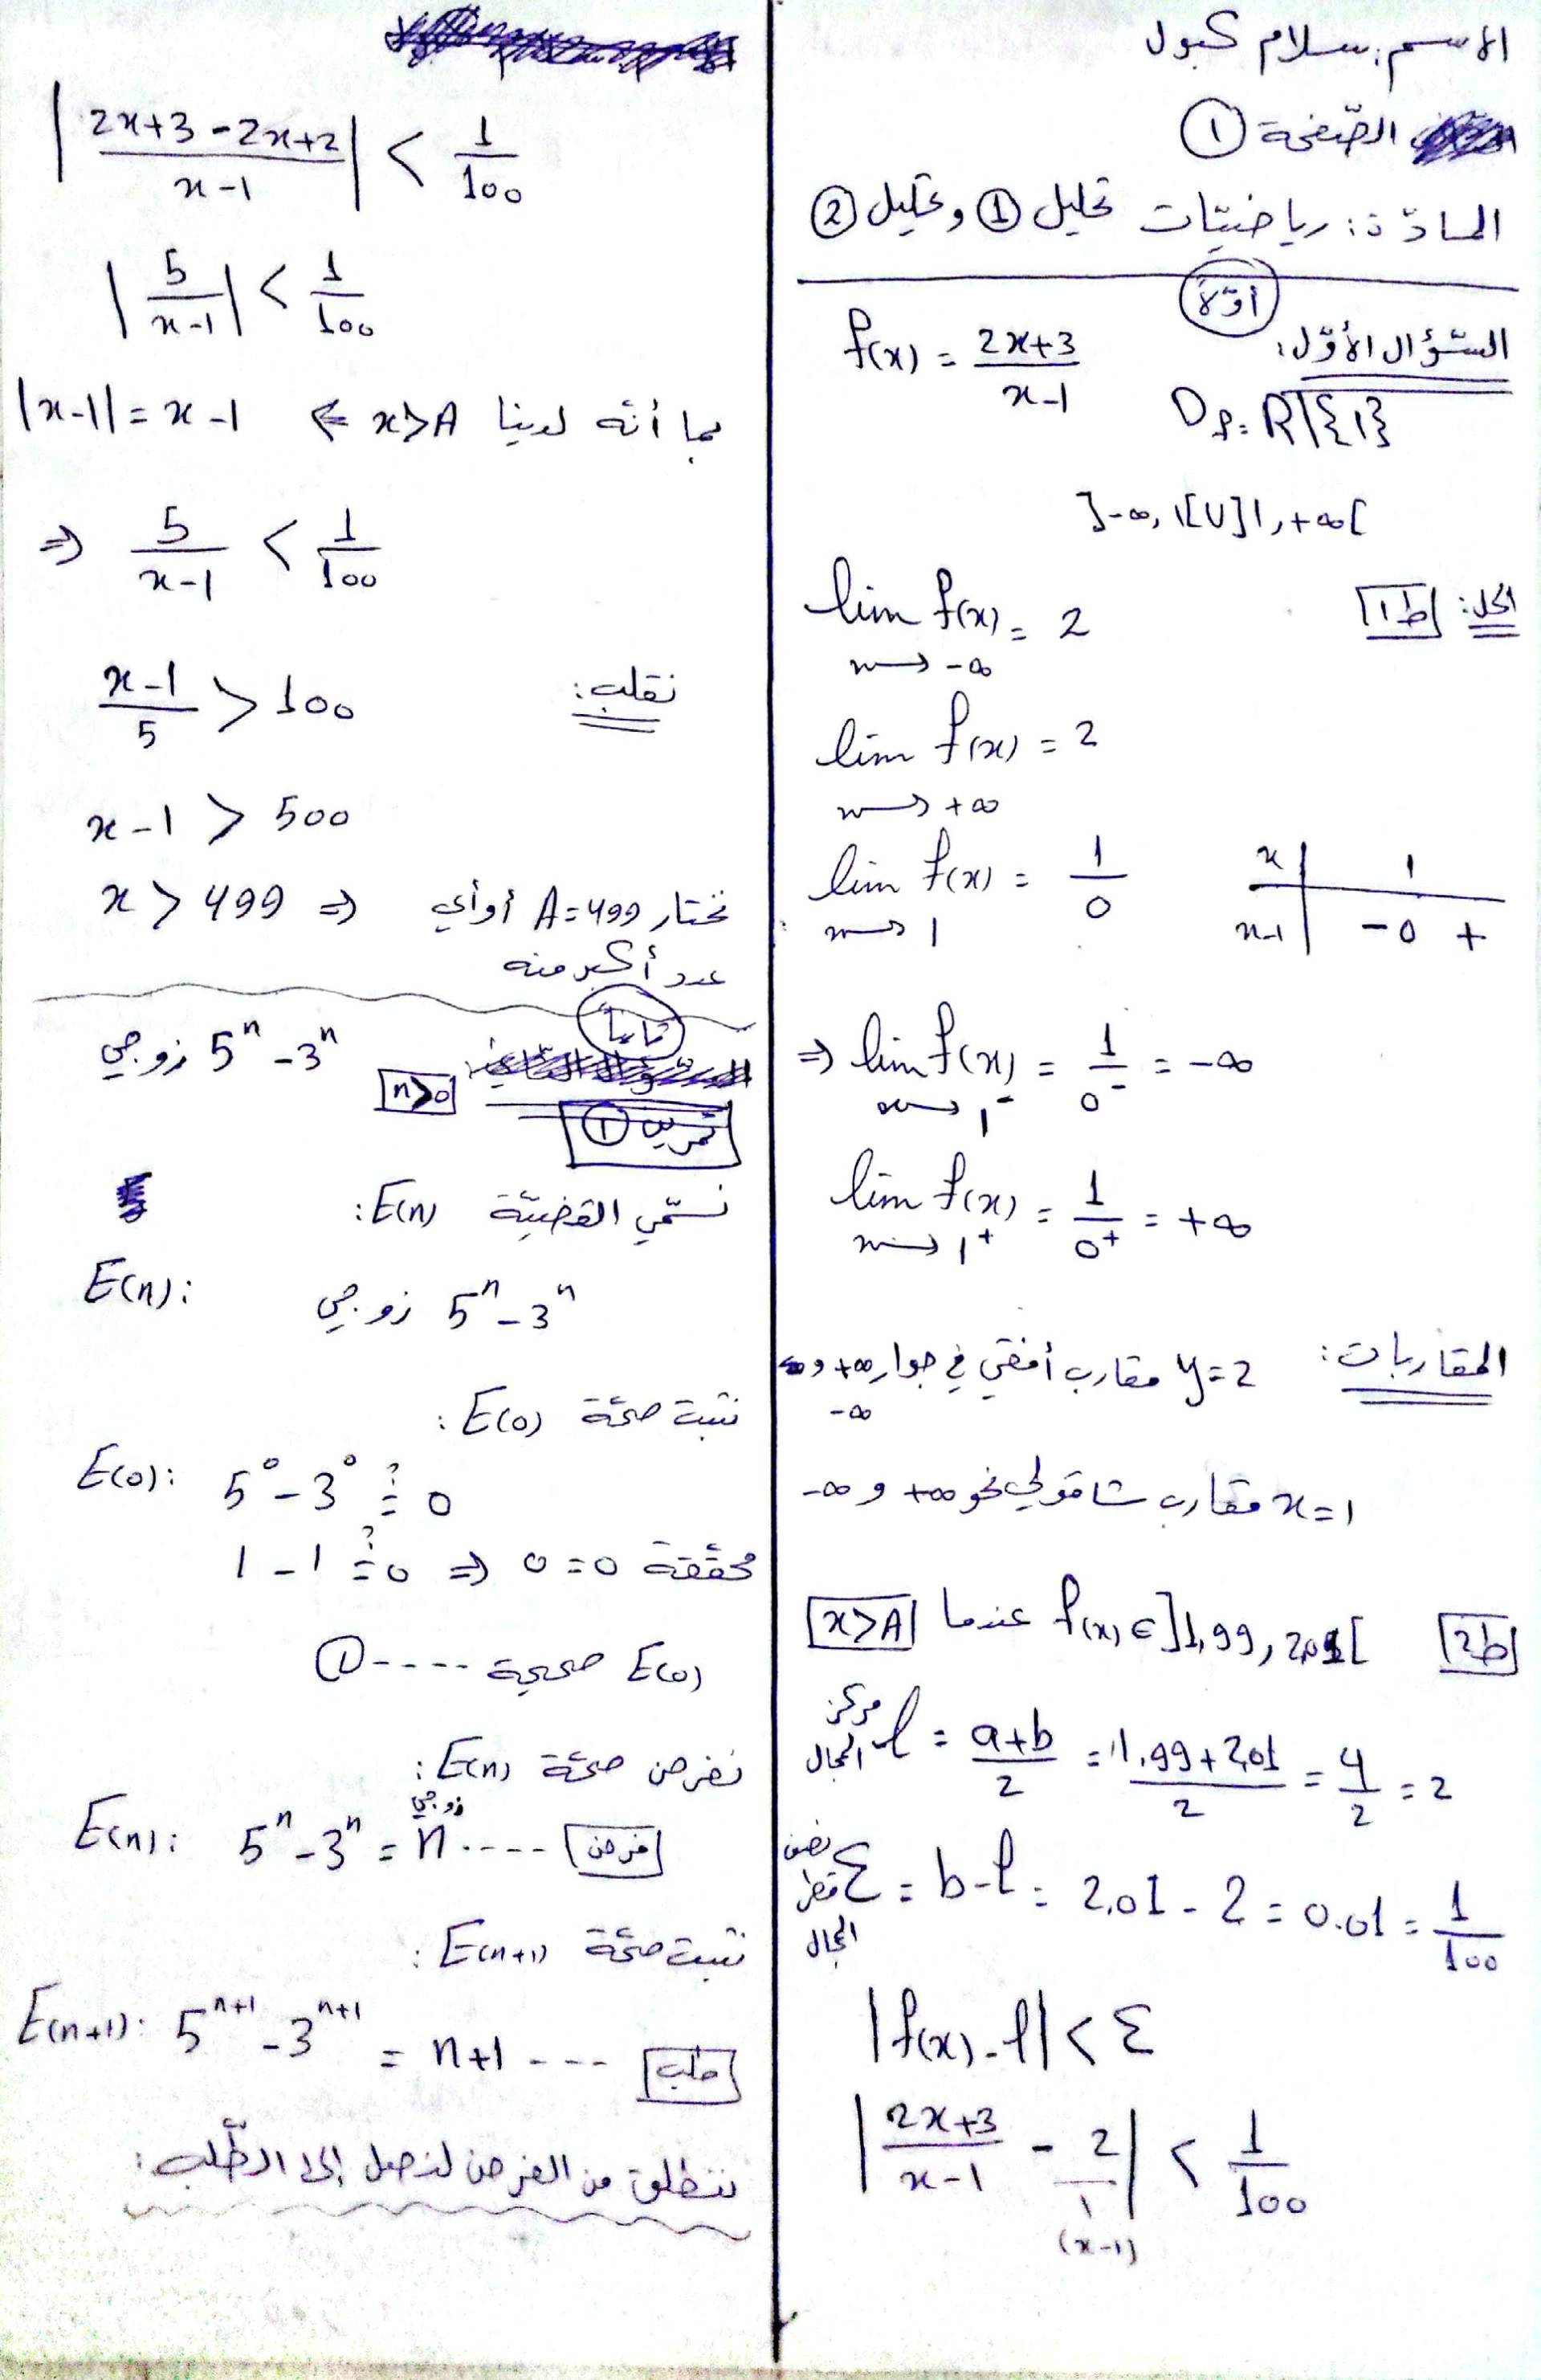 الاسم: سلام كبول
الصّفحة ①
المادّة: رياضيّات تحليل ① وتحليل ②
أوّلاً
السّؤال الأوّل: f(x) = (2x+3)/(x-1)
D_f = R\{1}
]-∞, 1[ U ]1, +∞[
الحل: ط1 lim f(x) = 2
x→-∞
lim f(x) = 2
x→+∞
lim f(x) = 1/0
x→1
x | 1
x-1 | - 0 +
⇒ lim f(x) = 1/0⁻ = -∞
x→1⁻
lim f(x) = 1/0⁺ = +∞
x→1⁺
المقاربات: y=2 مقارب أفقي في جوار +∞ و
-∞
x=1 مقارب شاقولي نحو +∞ و -∞
ط2 f(x) ∈ ]1,99, 2,01[ عندما x>A
مركز المجال ℓ = (a+b)/2 = (1,99+2,01)/2 = 4/2 = 2
نصف قطر المجال ε = b-ℓ = 2,01 - 2 = 0.01 = 1/100
|f(x)-ℓ| < ε
|(2x+3)/(x-1) - 2/1| < 1/100
(x-1)
|(2x+3-2x+2)/(x-1)| < 1/100
|5/(x-1)| < 1/100
بما أنّه لدينا x>A ⇐ |x-1| = x-1
⇒ 5/(x-1) < 1/100
نقلب: (x-1)/5 > 100
x-1 > 500
x > 499 ⇒ نختار A=499 أو أي
عدد أكبر منه
ثانياً
5ⁿ-3ⁿ زوجي
n>0
تمرين ①
نسمّي القضيّة E(n):
E(n): 5ⁿ-3ⁿ زوجي
نثبت صحّة E(0):
E(0): 5⁰-3⁰ ≟ 0
1-1 ≟ 0 ⇒ 0=0 محقّقة
E(0) صحيحة ---- ①
نفرض صحّة E(n):
زوجي
E(n): 5ⁿ-3ⁿ = n ---- فرض
نثبت صحّة E(n+1):
E(n+1): 5ⁿ⁺¹-3ⁿ⁺¹ = n+1 --- طلب
ننطلق من الفرض لنصل إلى الطّلب: